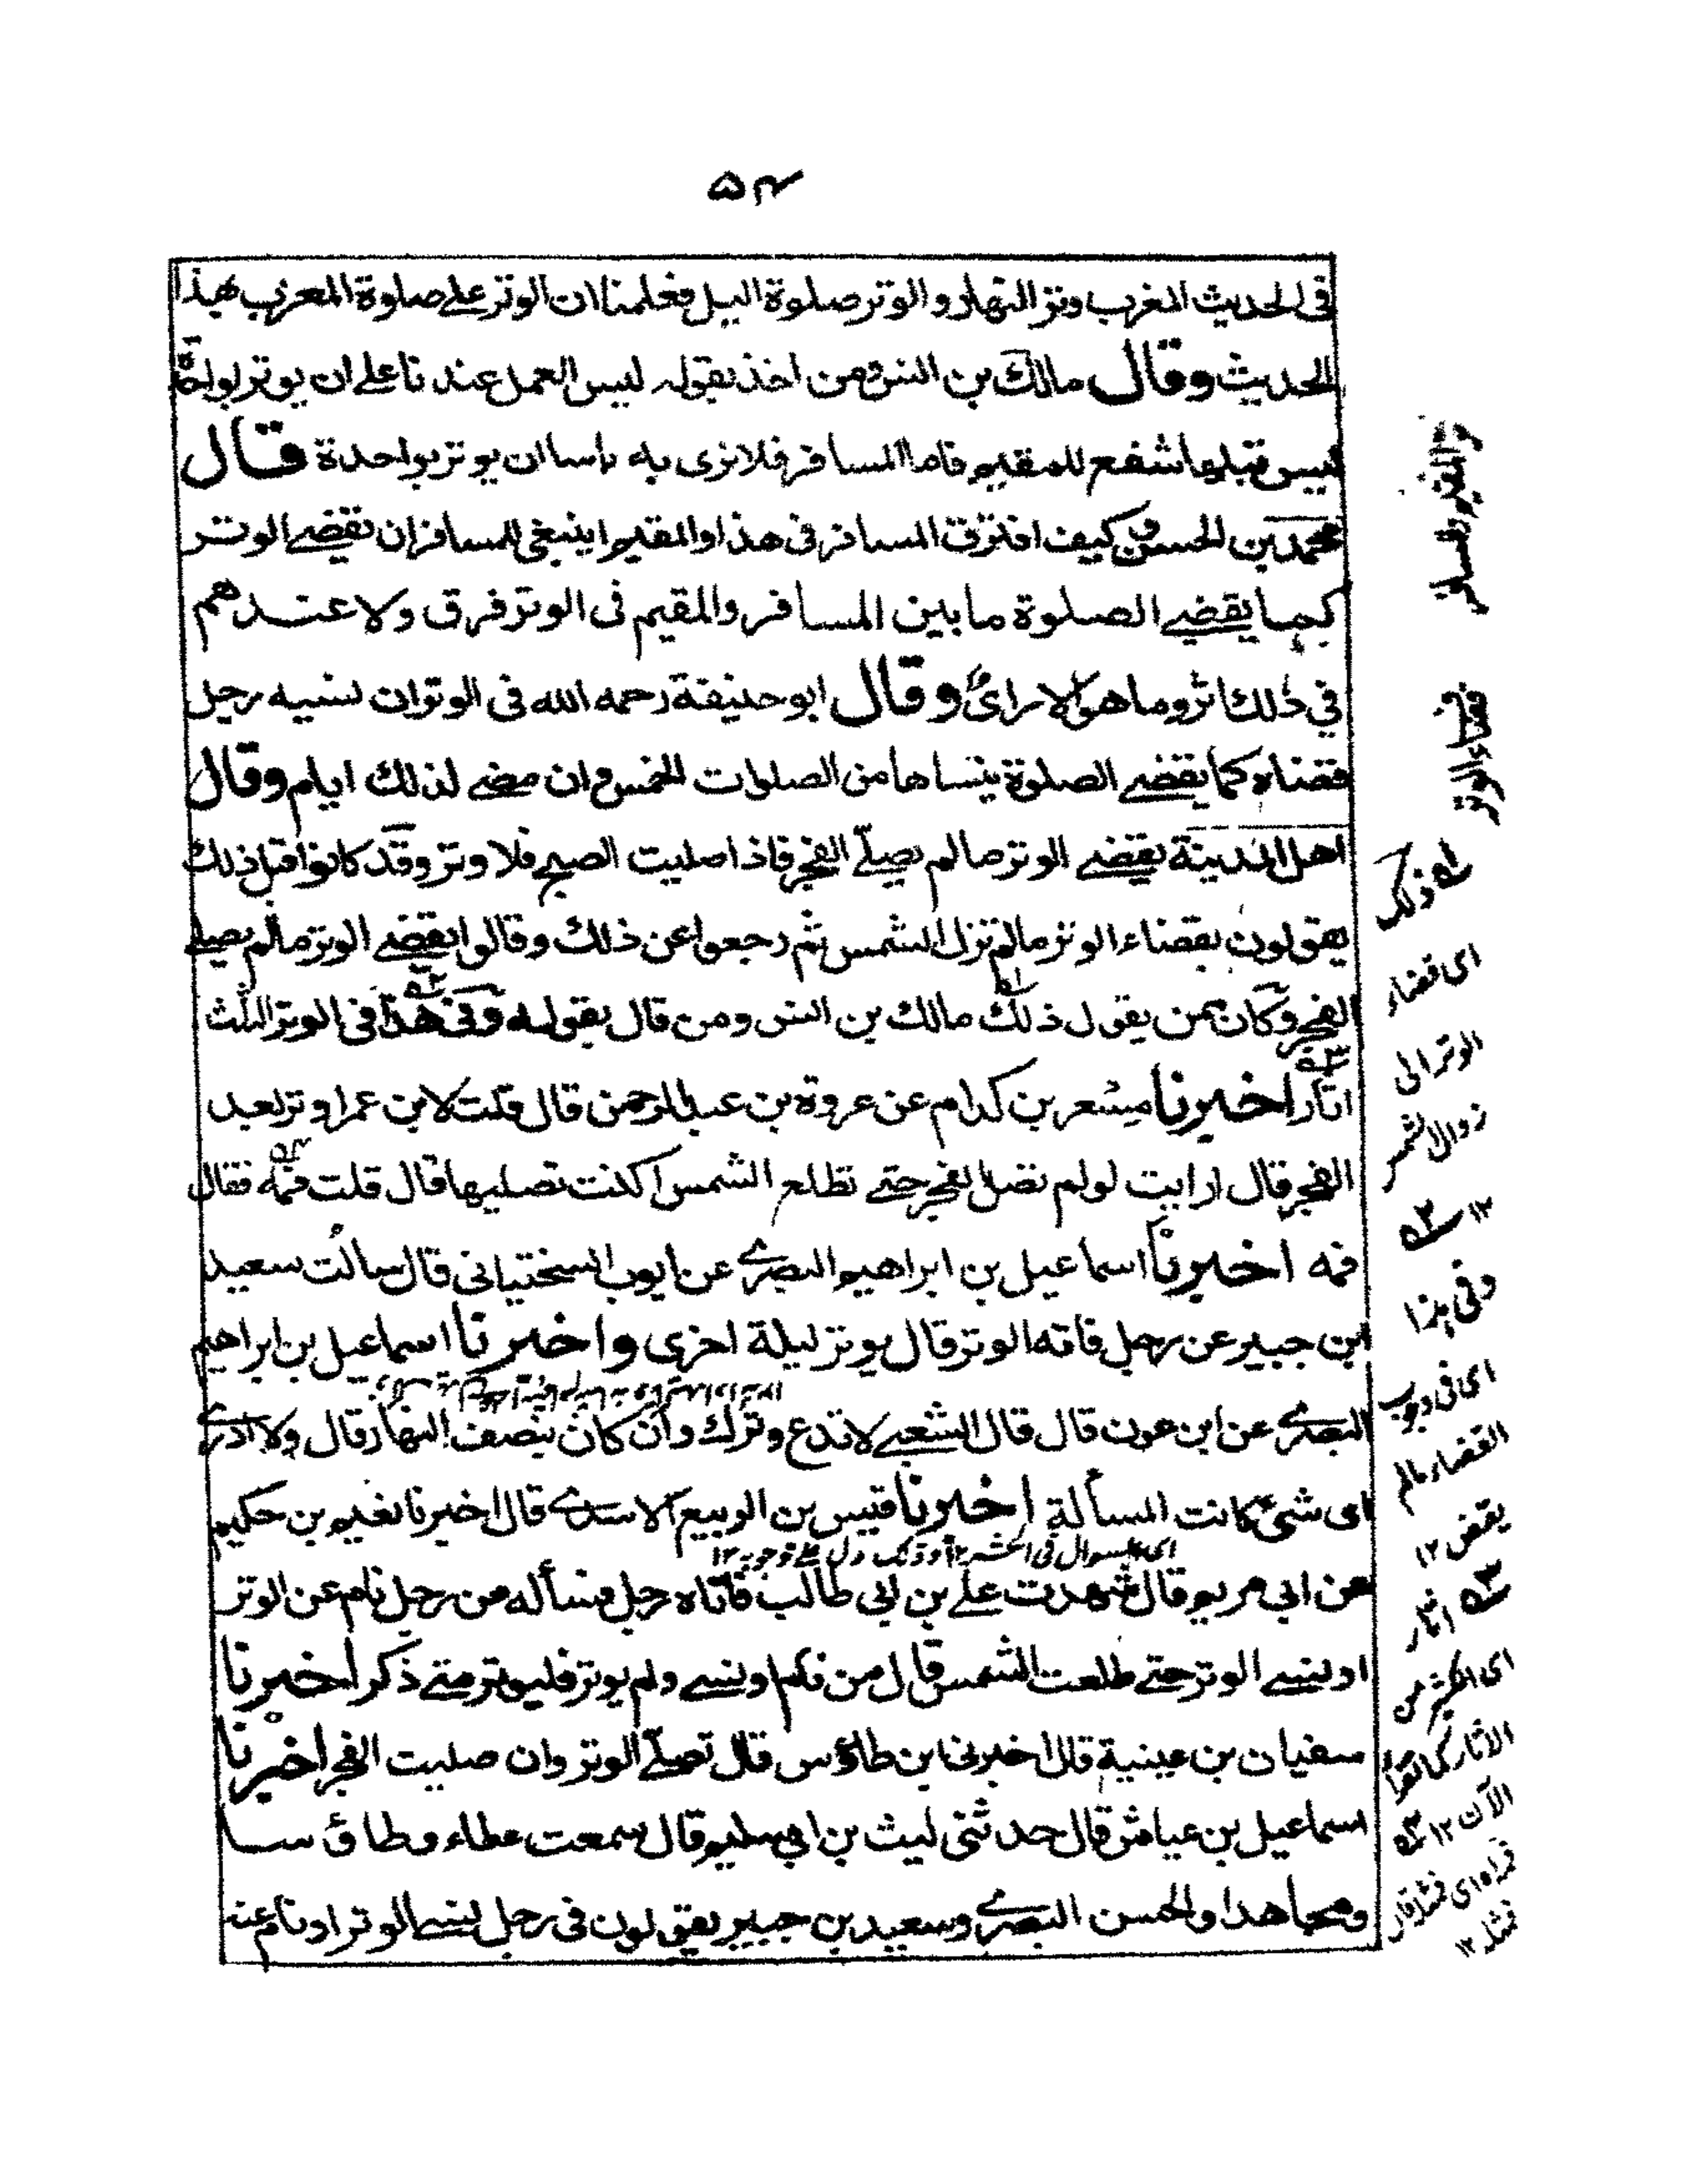 ۵۴
فى الحديث المغرب وتر النهار والوتر صلوة اليل فعلمنا ان الوتر على صلوة المغرب بهذا
الحديث وقال مالك بن انس ومن اخذ بقوله ليس العمل عندنا على ان يوتر بواحدة
ليس قبلها شفع للمقيم فاما المسافر فلا نرى به باسا ان يوتر بواحدة قال
محمد بن الحسن كيف افترق المسافر فى هذا والمقيم اينبغى للمسافر ان يقضے الوتر
كما يقضے الصلوة ما بين المسافر والمقيم فى الوتر فرق ولا عندهم
في ذلك اثر وما هو الا راى وقال ابو حنيفة رحمه الله فى الوتر ان نسيه رجل
قضاه كما يقضے الصلوة ينساها من الصلوات الخمس وان مضے لذلك ايام وقال
اهل المدينة يقضے الوتر ما لم يصلّے الفجر فاذا صليت الصبح فلا وتر وقد كانوا قبل ذلك
يقولون بقضاء الوتر ما لم تزل الشمس ثم رجعوا عن ذلك وقالوا يقضے الوتر ما لم يصلے
الفجر وكان ممن يقول ذلك مالك بن انس ومن قال بقوله وفى هذا فى الوتر الثلث
اثار اخبرنا مسعر بن كدام عن عروة بن عبد الرحمن قال قلت لابن عمر اوتر بعد
الفجر قال ارايت لو لم تصل الفجر حتے تطلع الشمس اكنت تصليها قال قلت فمه فقال
فمه اخبرنا اسماعيل بن ابراهيم البصرے عن ايوب السختيانى قال سالت سعيد
ابن جبير عن رجل فاته الوتر قال يوتر ليلة اخرى واخبرنا اسماعيل بن ابراهيم
البصرے عن ابن عون قال قال الشعبے لا تدع وترك وان كان بنصف النهار قال ولا ادرے
اى شئ كانت المسألة اخبرنا قيس بن الربيع الاسدے قال اخبرنا نعيم بن حكيم
عن ابى مريم قال شهدت علے بن ابى طالب فاتاه رجل فسأله من رجل نام عن الوتر
او نسے الوتر حتے طلعت الشمس قال من نام او نسے ولم يوتر فليوتر متے ذكر اخبرنا
سفيان بن عيينة قال اخبرنا ابن طاؤس قال تصلّے الوتر وان صليت الفجر اخبرنا
اسماعيل بن عياش قال حدثنى ليث بن ابي سليم قال سمعت عطاء وطاؤسا
ومجاهدا والحسن البصرے وسعيد بن جبير يقولون فى رجل نسے الوتر او نام عنه
قضاء الوتر
۱ه ذلك
اى قضاء
الوتر الى
زوال الشمس
۱۲ ۲ه
وفى هذا
اى فى وجوب
القضاء ما لم
يقض ۱۲
۳ه اثار
اى اكثر من
الآن ۱۲